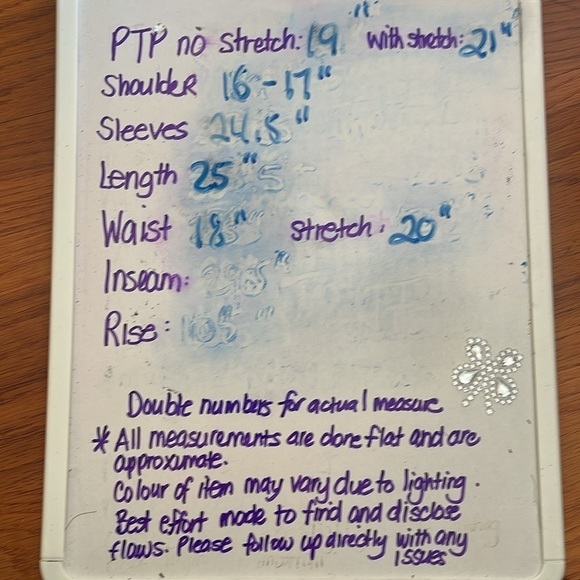 PTP no Stretch: 19" With stretch: 21"
Shoulder 16-17"
Sleeves 24.5"
Length 25"
Waist 18" Stretch: 20"
Inseam:
Rise:
Double numbers for actual measure
* All measurements are done flat and are
approximate.
Colour of item may vary due to lighting.
Best effort made to find and disclose
flaws. Please follow up directly with any
issues